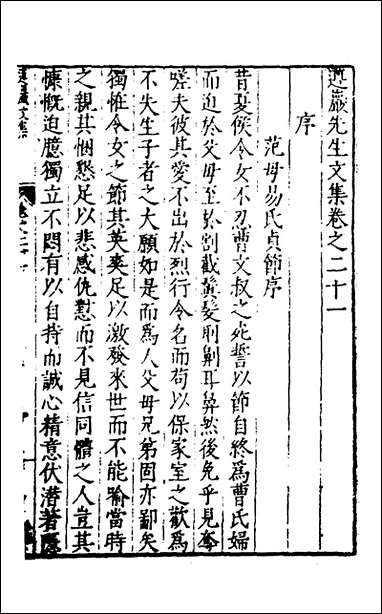 遵巖先生文集卷之二十一
序
范母易氏貞節序
昔夏侯令女不忍曹文叔之死誓以節自終為曹氏婦
而迫於父母至於割截鬒髮刖劓耳鼻然後免乎見奪
嗟夫彼其愛不出於烈行令名而苟以保家室之歡為
不失生子者之大願如是而為人父母兄弟固亦鄙矣
獨惟令女之節其英爽足以激發来世而不能喻當時
之親其悃懇足以悲感仇懟而不見信同體之人豈其
慷慨迫臆獨立不悶有以自持而誠心精意伏潜著